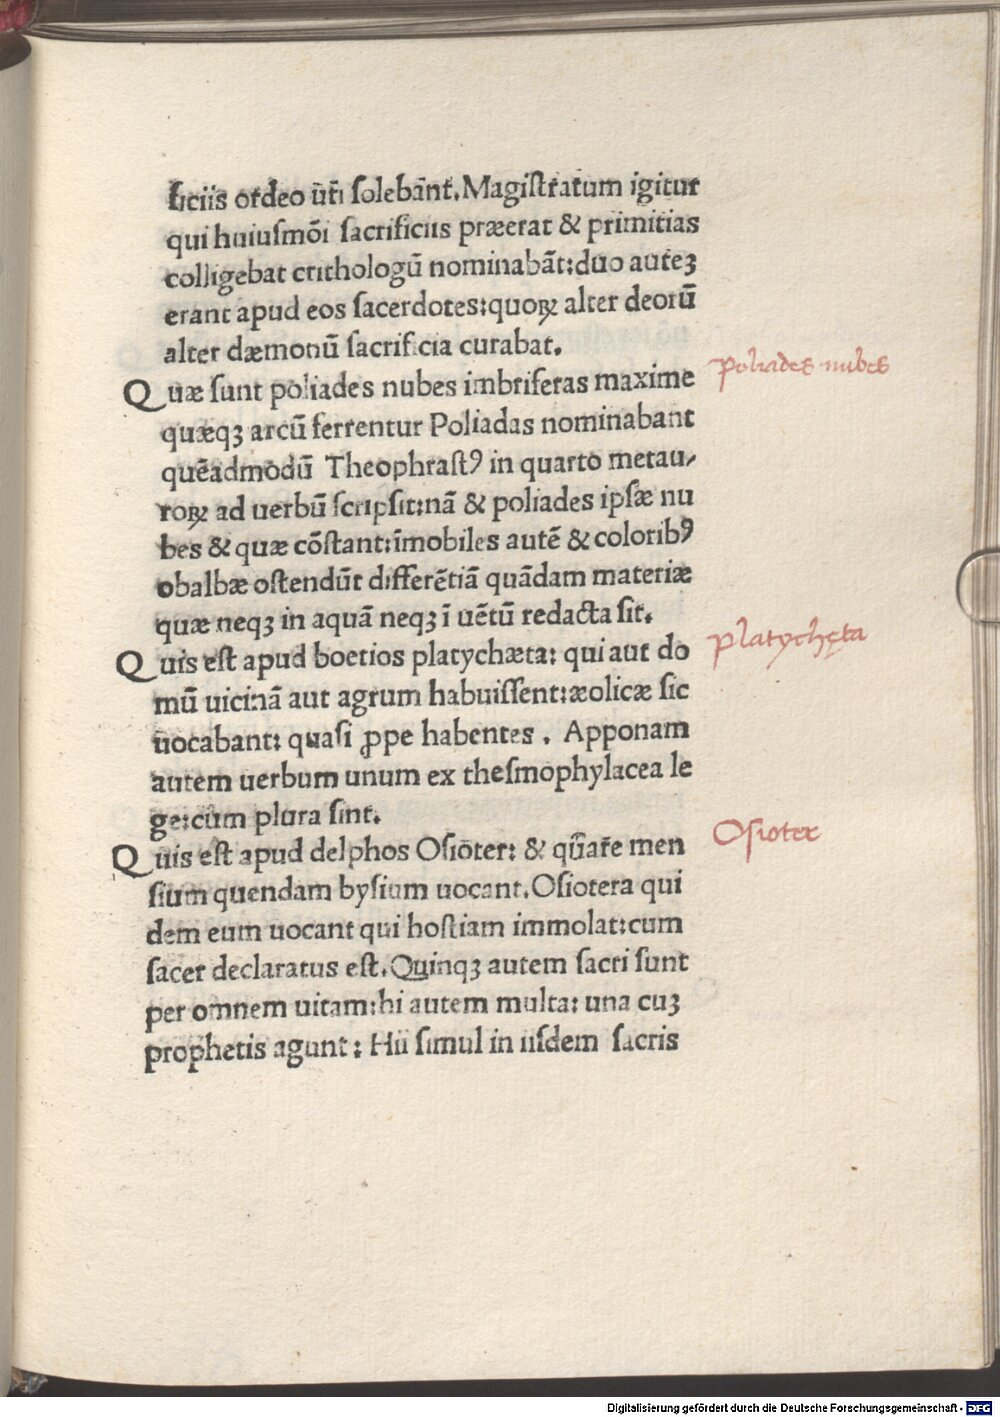 ficiis ordeo ūti solebāt. Magistratum igitur
qui huiusmōi sacrificiis præerat & primitias
colligebat crithologū nominabāt: duo auteꝫ
erant apud eos sacerdotes: quoꝝ alter deorū
alter dæmonū sacrificia curabat.
Quæ sunt poliades nubes imbriferas maxime
Poliades nubes
quæqꝫ arcū ferrentur Poliadas nominabant
quēadmodū Theophrastꝰ in quarto metau/
roꝝ ad uerbū scripsit: nā & poliades ipsæ nu
bes & quæ cōstant: īmobiles autē & coloribꝰ
obalbæ ostendūt differētiā quādam materiæ
quæ neqꝫ in aquā neqꝫ ī uētū redacta sit.
Quis est apud boetios platychæta: qui aut do
platychęta
mū uicinā aut agrum habuissent: æolicæ sic
uocabant: quasi ꝓpe habentes. Apponam
autem uerbum unum ex thesmophylacea le
ge: cum plura sint.
Quis est apud delphos Osiōter: & quare men
Osioter
sium quendam bysium uocant. Osiotera qui
dem eum uocant qui hostiam immolat: cum
sacer declaratus est. Quinqꝫ autem sacri sunt
per omnem uitam: hi autem multa: una cuꝫ
prophetis agunt: Hii simul in iisdem sacris
Digitalisierung gefördert durch die Deutsche Forschungsgemeinschaft - DFG